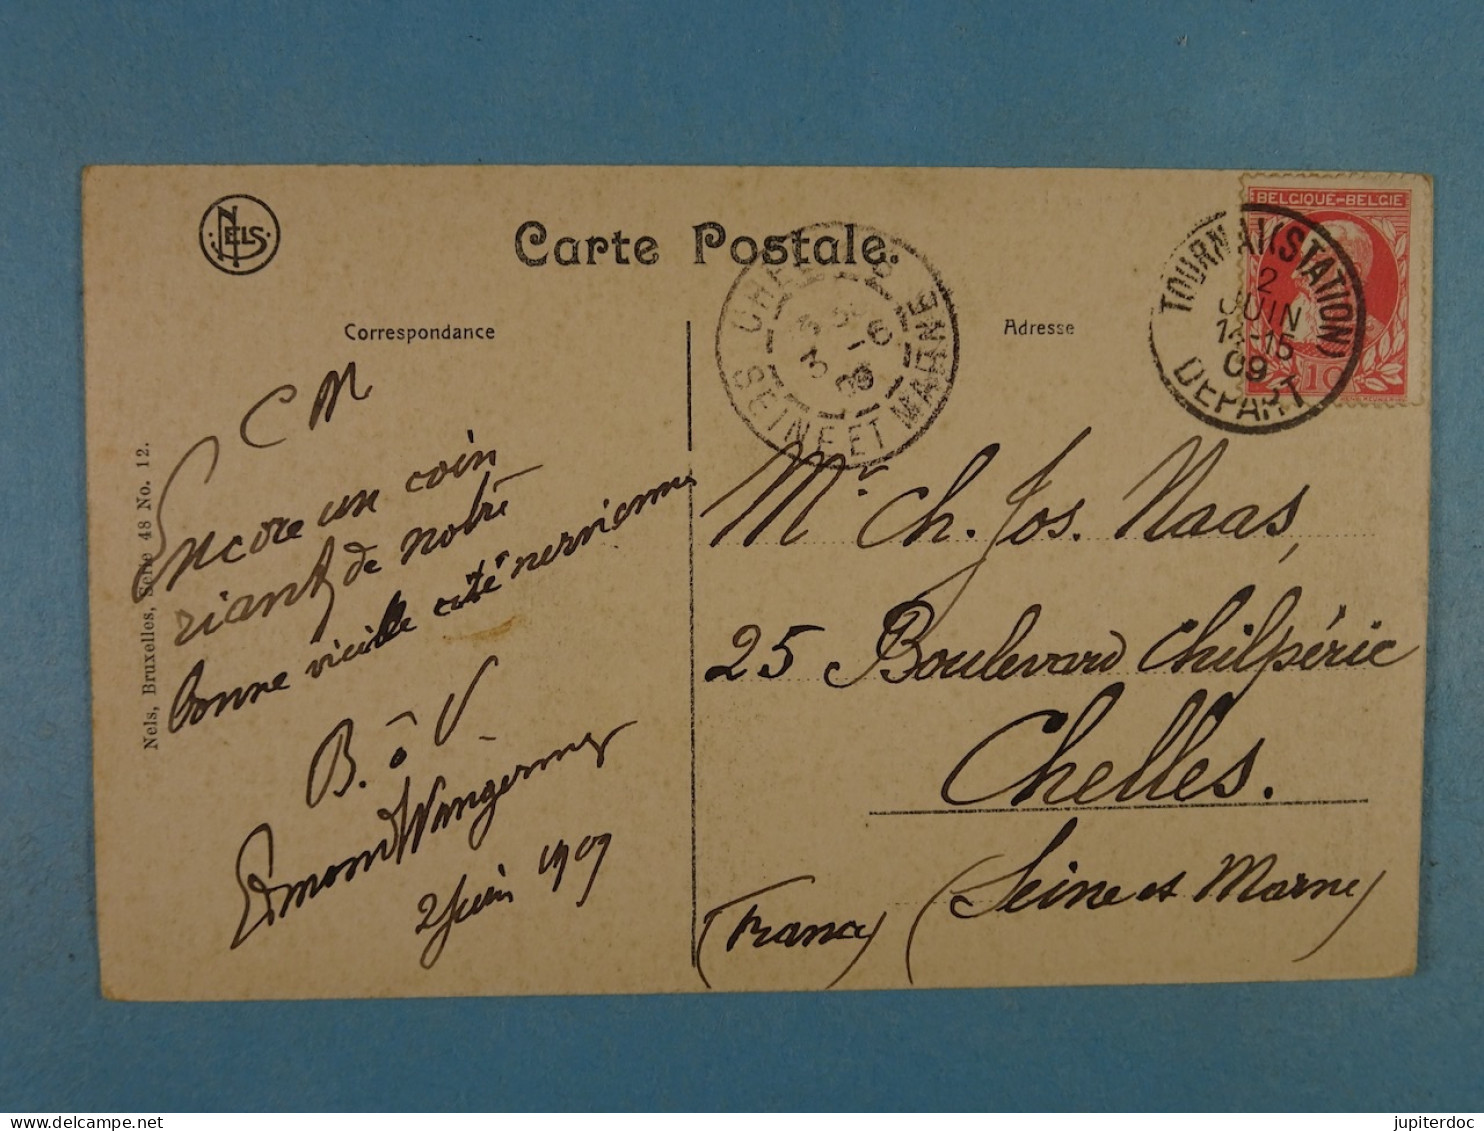 NELS
Carte Postale.
Correspondance
Adresse
BELGIQUE-BELGIE
10
TOURNAI (STATION)
2
JUIN
14-15
09
DEPART
CHELLES
3-6
09
SEINE ET MARNE
C M
Encore un coin
riant de notre
bonne vieille cité nervienne
B. à V
Edmond Wangermez
2 Juin 1909
Mr Ch. Jos. Naas,
25 Boulevard Chilpéric
Chelles.
(Seine et Marne)
(France)
Nels, Bruxelles, Serie 48 No. 12.
jupiterdoc